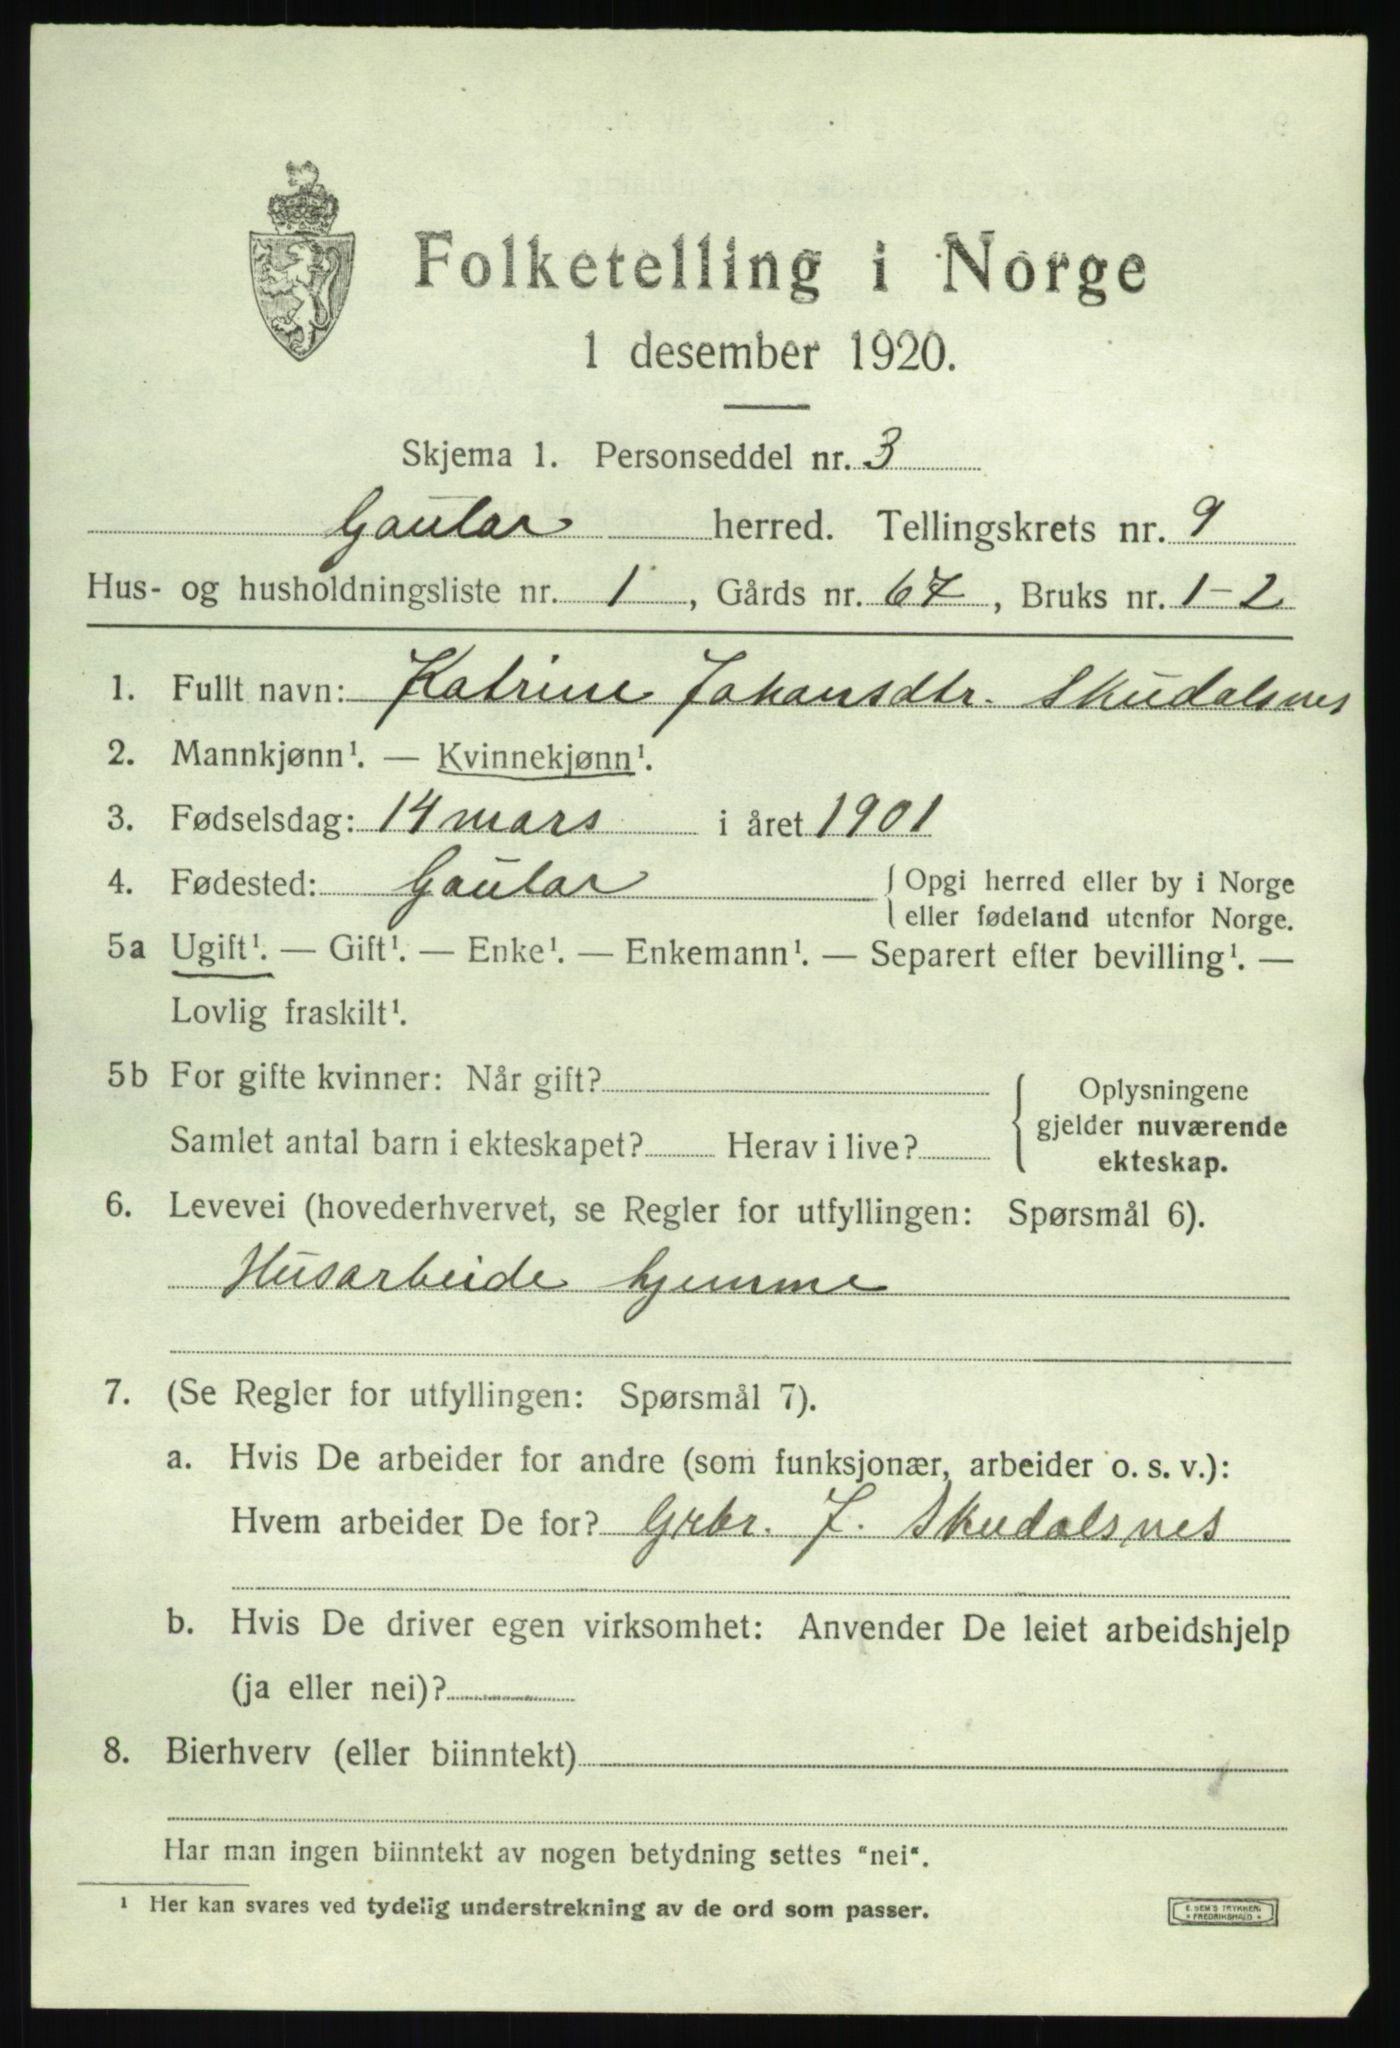 Folketelling i Norge
1 desember 1920.
Skjema 1. Personseddel nr. 3
Gaular herred. Tellingskrets nr. 9
Hus- og husholdningsliste nr. 1, Gårds nr. 67, Bruks nr. 1-2
1. Fullt navn: Katrine Johansdtr. Skudalsnes
2. Mannkjønn¹. — Kvinnekjønn¹.
3. Fødselsdag: 14 mars i året 1901
4. Fødested: Gaular { Opgi herred eller by i Norge
eller fødeland utenfor Norge.
5a Ugift¹. — Gift¹. — Enke¹. — Enkemann¹. — Separert efter bevilling¹. —
Lovlig fraskilt¹.
5b For gifte kvinner: Når gift?
Samlet antal barn i ekteskapet? Herav i live?
Oplysningene
gjelder nuværende
ekteskap.
6. Levevei (hovederhvervet, se Regler for utfyllingen: Spørsmål 6).
Husarbeide hjemme
7. (Se Regler for utfyllingen: Spørsmål 7).
a. Hvis De arbeider for andre (som funksjonær, arbeider o. s. v.):
Hvem arbeider De for? Grbr. J. Skudalsnes
b. Hvis De driver egen virksomhet: Anvender De leiet arbeidshjelp
(ja eller nei)?
8. Bierhverv (eller biinntekt)
Har man ingen biinntekt av nogen betydning settes "nei".
¹ Her kan svares ved tydelig understrekning av de ord som passer.
E. SEM'S TRYKKERI
FREDRIKSHALD